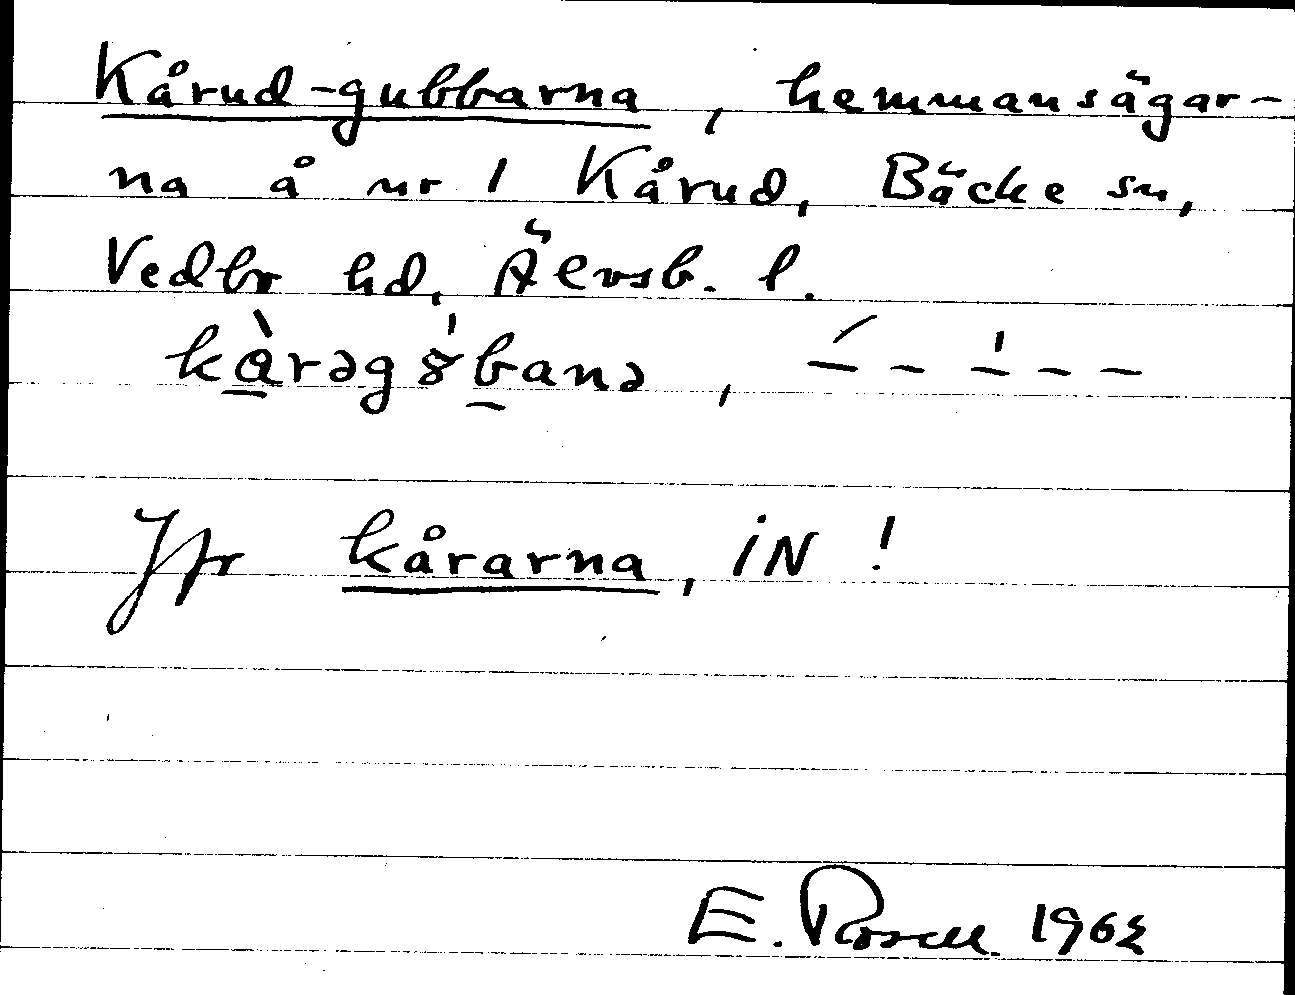 Kårud-gubbarna, hemmansägar-
na å nr 1 Kårud, Bäcke sn,
Vedbo hd, Älvsb. l.
kàrəg8̍banə, –́ – –̍ – –
Jfr kårarna, iN!
E. Rosell 1962